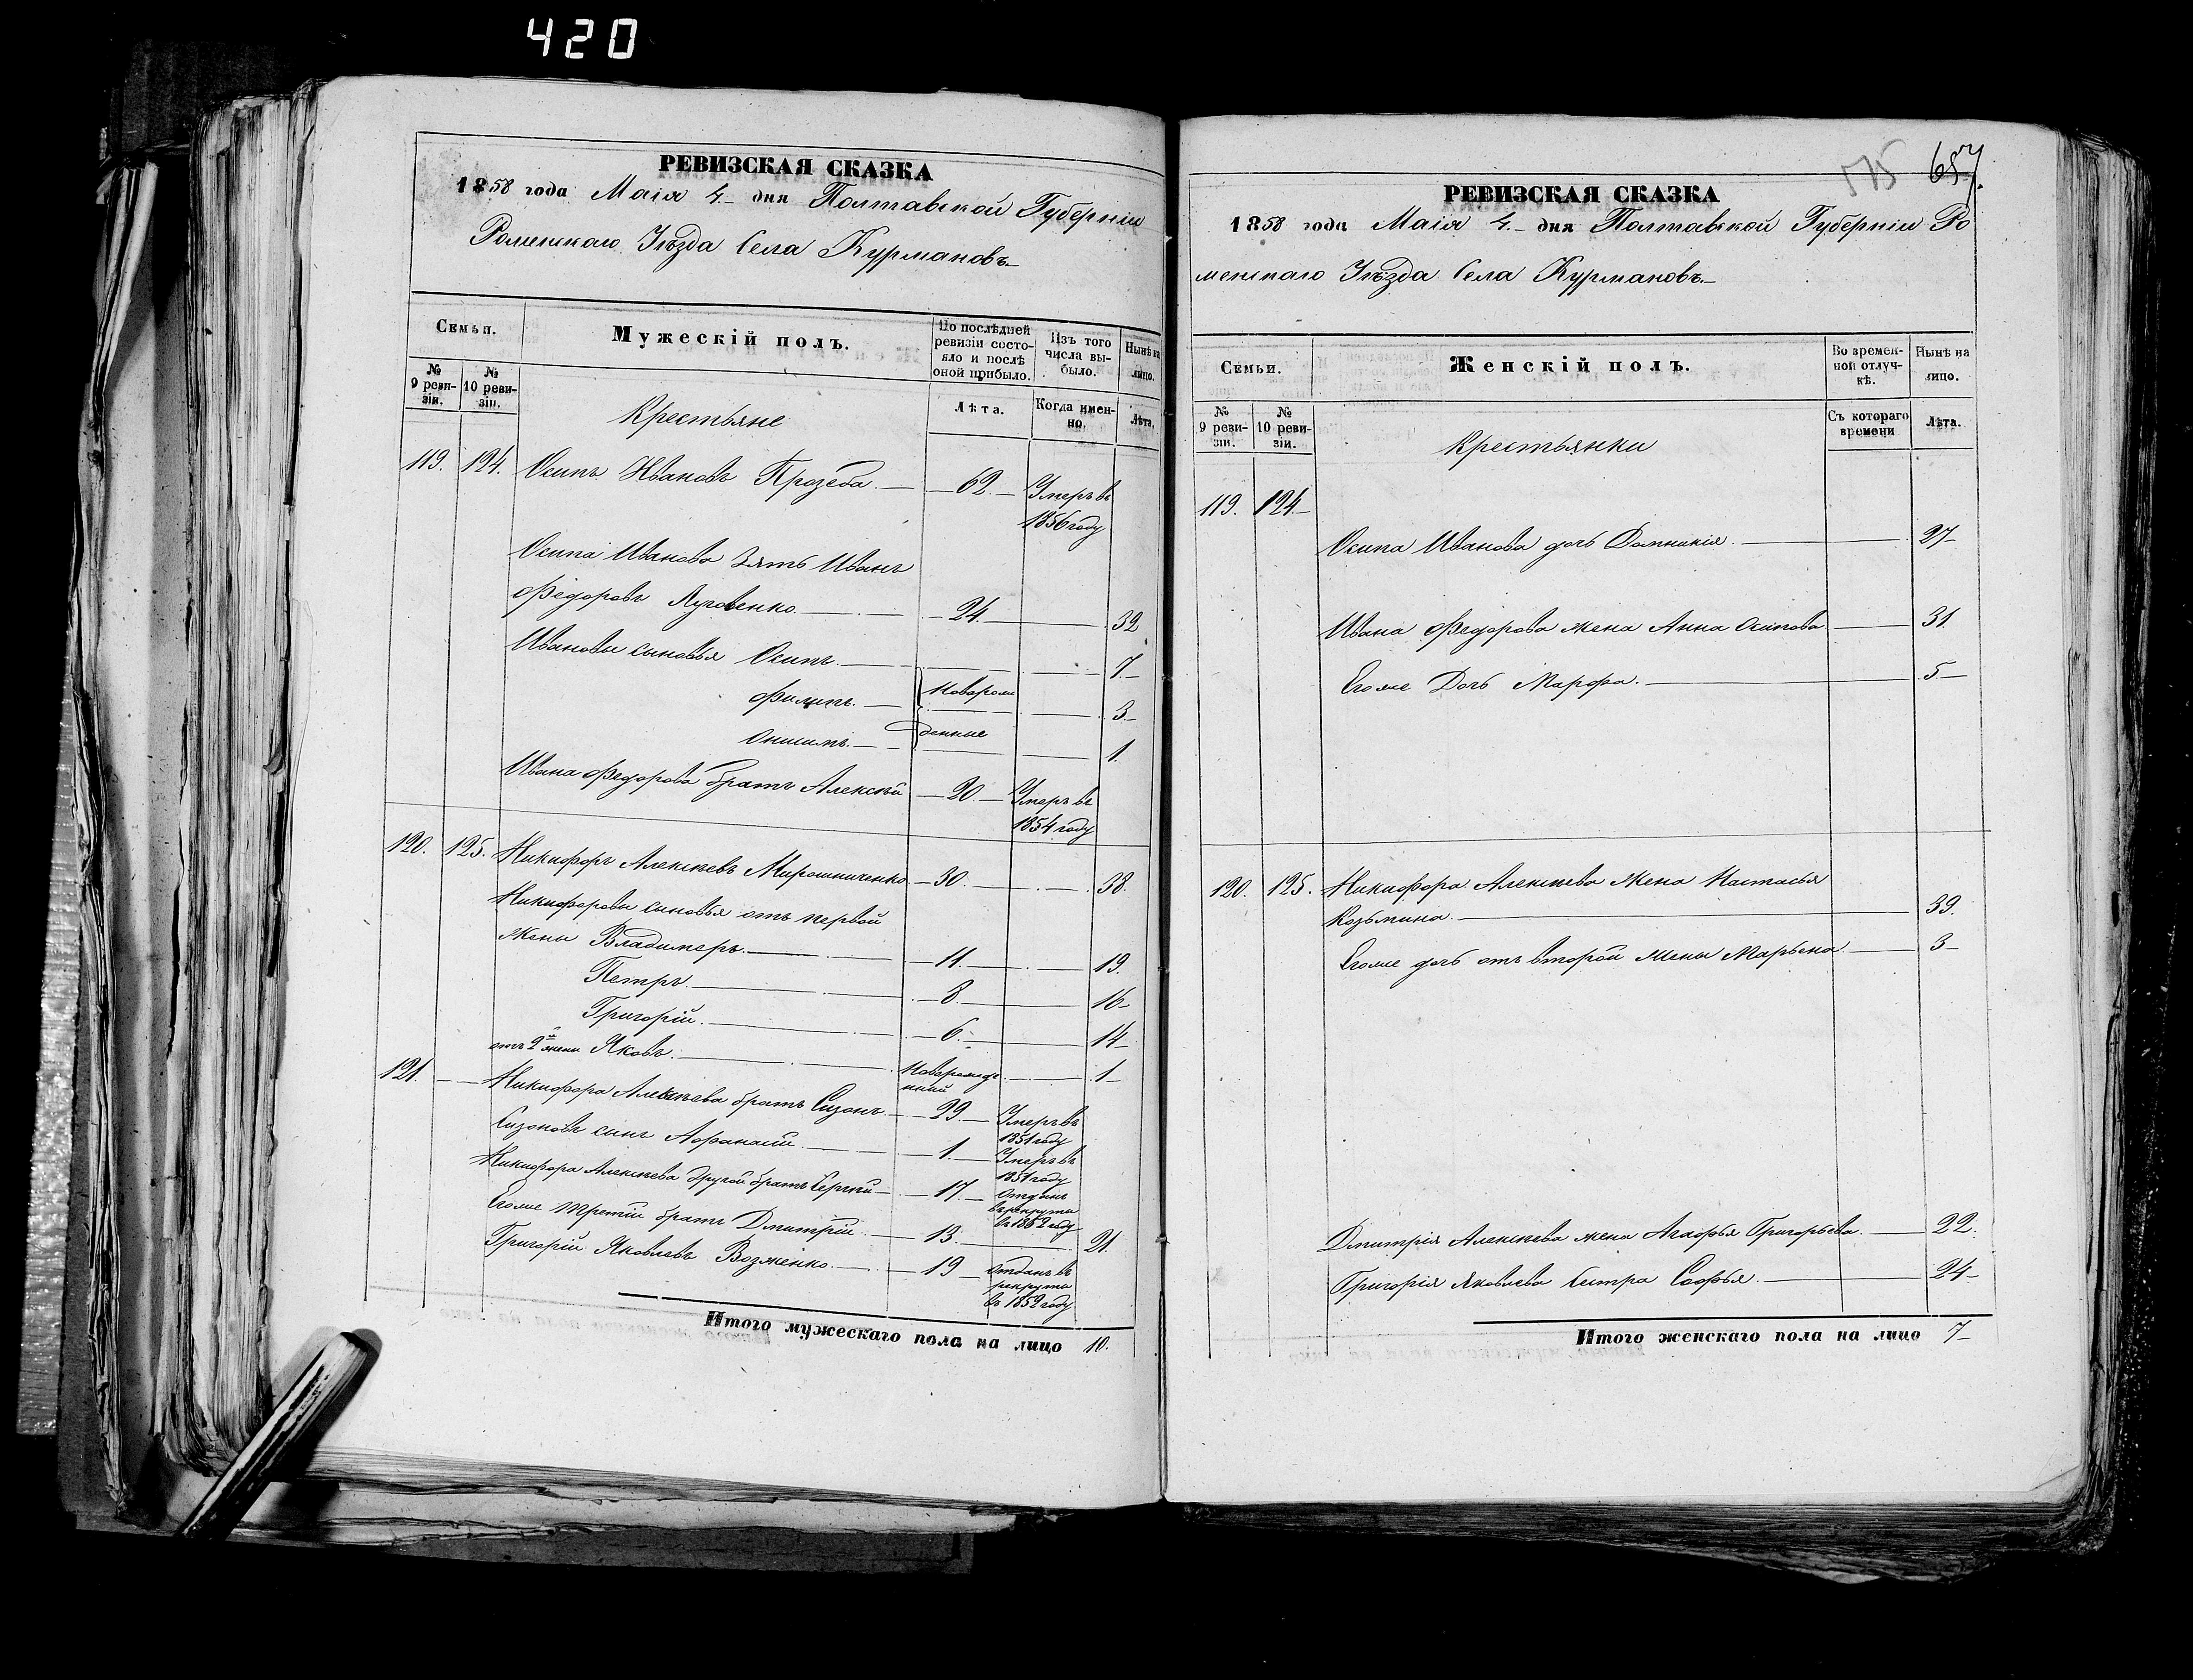 420
РЕВИЗСКАЯ СКАЗКА
1858 года Маія 4 дня Полтавской Губерніи
Роменскаго Уѣзда Села Курмановъ
Семьи.
Мужескій полъ.
По послѣдней ревизіи состояло и послѣ оной прибыло.
Изъ того числа выбыло.
Нынѣ на лицо.
№ 9 ревизіи.
№ 10 ревизіи.
Крестьяне
Лѣта.
Когда именно.
Лѣта.
119. 124. Осипъ Ивановъ Прозеба — 62 — Умеръ въ
1856 году
Осипа Иванова Зять Иванъ
Федоровъ Луговенко — 24. — 32
Ивановы сыновья Осипъ — 7
Филипъ — Новорож — 3
Онисимъ — денные — 1
Ивана Федорова братъ Алексѣй — 20 — Умеръ въ
1854 году
120. 125. Никифоръ Алексѣевъ Мирошниченко — 30. — 38.
Никифоровы сыновья отъ первой
жены Владимеръ — 11. — 19.
Петръ — 8. — 16
Григорій — 6. — 14
отъ 2й жены Яковъ — Новорожде нный — 1
121. — Никифора Алексѣева братъ Сизонъ — 29 — Умеръ въ
1851 году
Сизоновъ сынъ Афанасій — 1. — Умеръ въ
1851 году
Никифора Алексѣева другой братъ Сергѣй — 17. — отданъ
въ рекруты
въ 1852 году
Егоже третій братъ Дмитрій — 13. — 21.
Григорій Яковлевъ Возженко — 19 — отданъ въ
рекруты
въ 1852 году
Итого мужескаго пола на лицо 10.
175 657.
РЕВИЗСКАЯ СКАЗКА
1858 года Маія 4 дня Полтавской Губерніи Ро
менскаго Уѣзда Села Курмановъ
Семьи.
Женскій полъ.
Во временной отлучкѣ.
Нынѣ на лицо.
№ 9 ревизіи.
№ 10 ревизіи.
Крестьянки
Съ котораго времени
Лѣта.
119. 124
Осипа Иванова дочь Домникія — 27
Ивана Федорова жена Анна Осипова — 31
Егоже Дочь Марфа — 5
120. 125. Никифора Алексѣева Жена Настасья
Козьмина — 39.
Егоже дочь отъ второй жены Марьена — 3
Дмитрія Алексѣева жена Агафья Григорьева — 22.
Григорія Яковлева Сестра Софья — 24
Итого женскаго пола на лицо 7